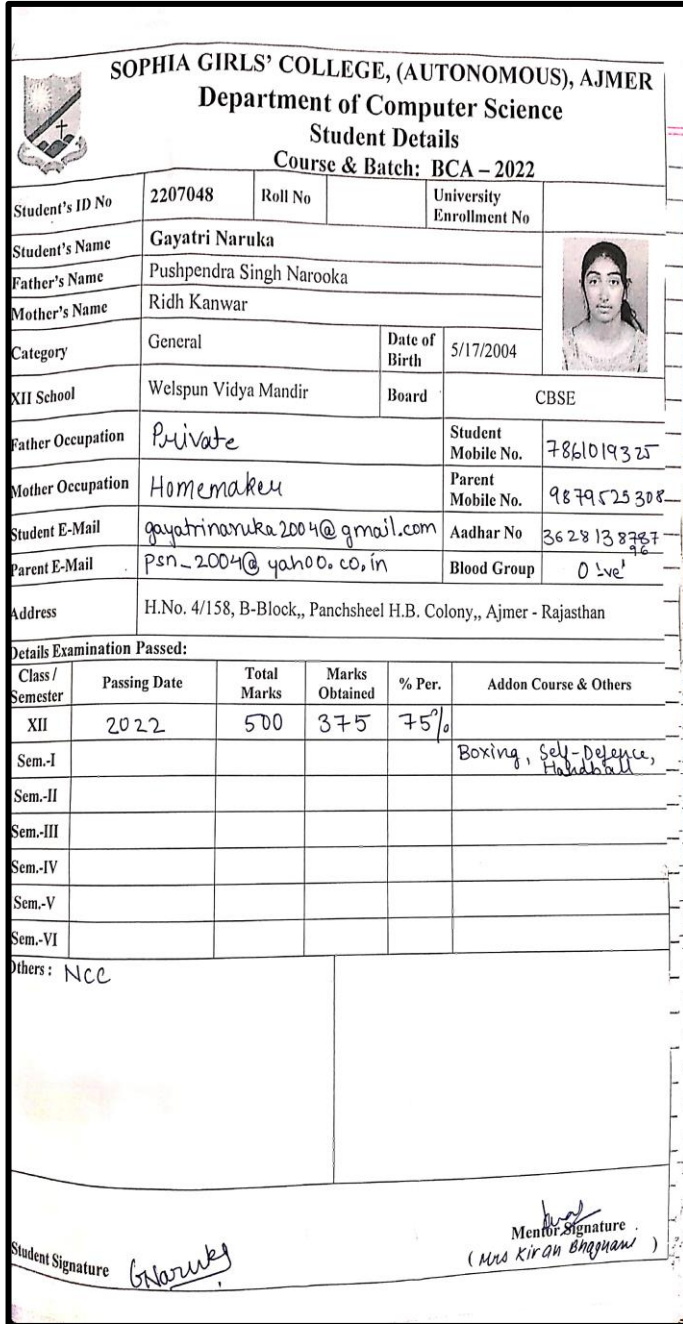 SOPHIA GIRLS' COLLEGE, (AUTONOMOUS), AJMER
Department of Computer Science
Student Details
Course & Batch: BCA – 2022
Student's ID No 2207048 Roll No University Enrollment No
Student's Name Gayatri Naruka
Father's Name Pushpendra Singh Narooka
Mother's Name Ridh Kanwar
Category General Date of Birth 5/17/2004
XII School Welspun Vidya Mandir Board CBSE
Father Occupation Private Student Mobile No. 7861019325
Mother Occupation Homemaker Parent Mobile No. 9879525308
Student E-Mail gayatrinaruka2004@gmail.com Aadhar No 362813878796
Parent E-Mail psn_2004@yahoo.co.in Blood Group O '-ve'
Address H.No. 4/158, B-Block,, Panchsheel H.B. Colony,, Ajmer - Rajasthan
Details Examination Passed:
Class / Semester Passing Date Total Marks Marks Obtained % Per. Addon Course & Others
XII 2022 500 375 75%
Sem.-I Boxing, Self-Defence, Handball
Sem.-II
Sem.-III
Sem.-IV
Sem.-V
Sem.-VI
Others : NCC
Mentor Signature
Student Signature GNaruka (Mrs Kiran Bhagnani)